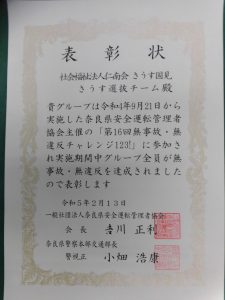 表彰状
社会福祉法人仁南会 きうす国見
きうす選抜チーム殿
貴グループは令和4年9月21日から
実施した奈良県安全運転管理者
協会主催の「第16回無事故・無
違反チャレンジ123!」に参加さ
れ実施期間中グループ全員が無
事故・無違反を達成されました
ので表彰します
令和5年2月13日
一般社団法人奈良県安全運転管理者協会
会長 吉川正利
奈良県警察本部交通部長
警視正 小畑浩康